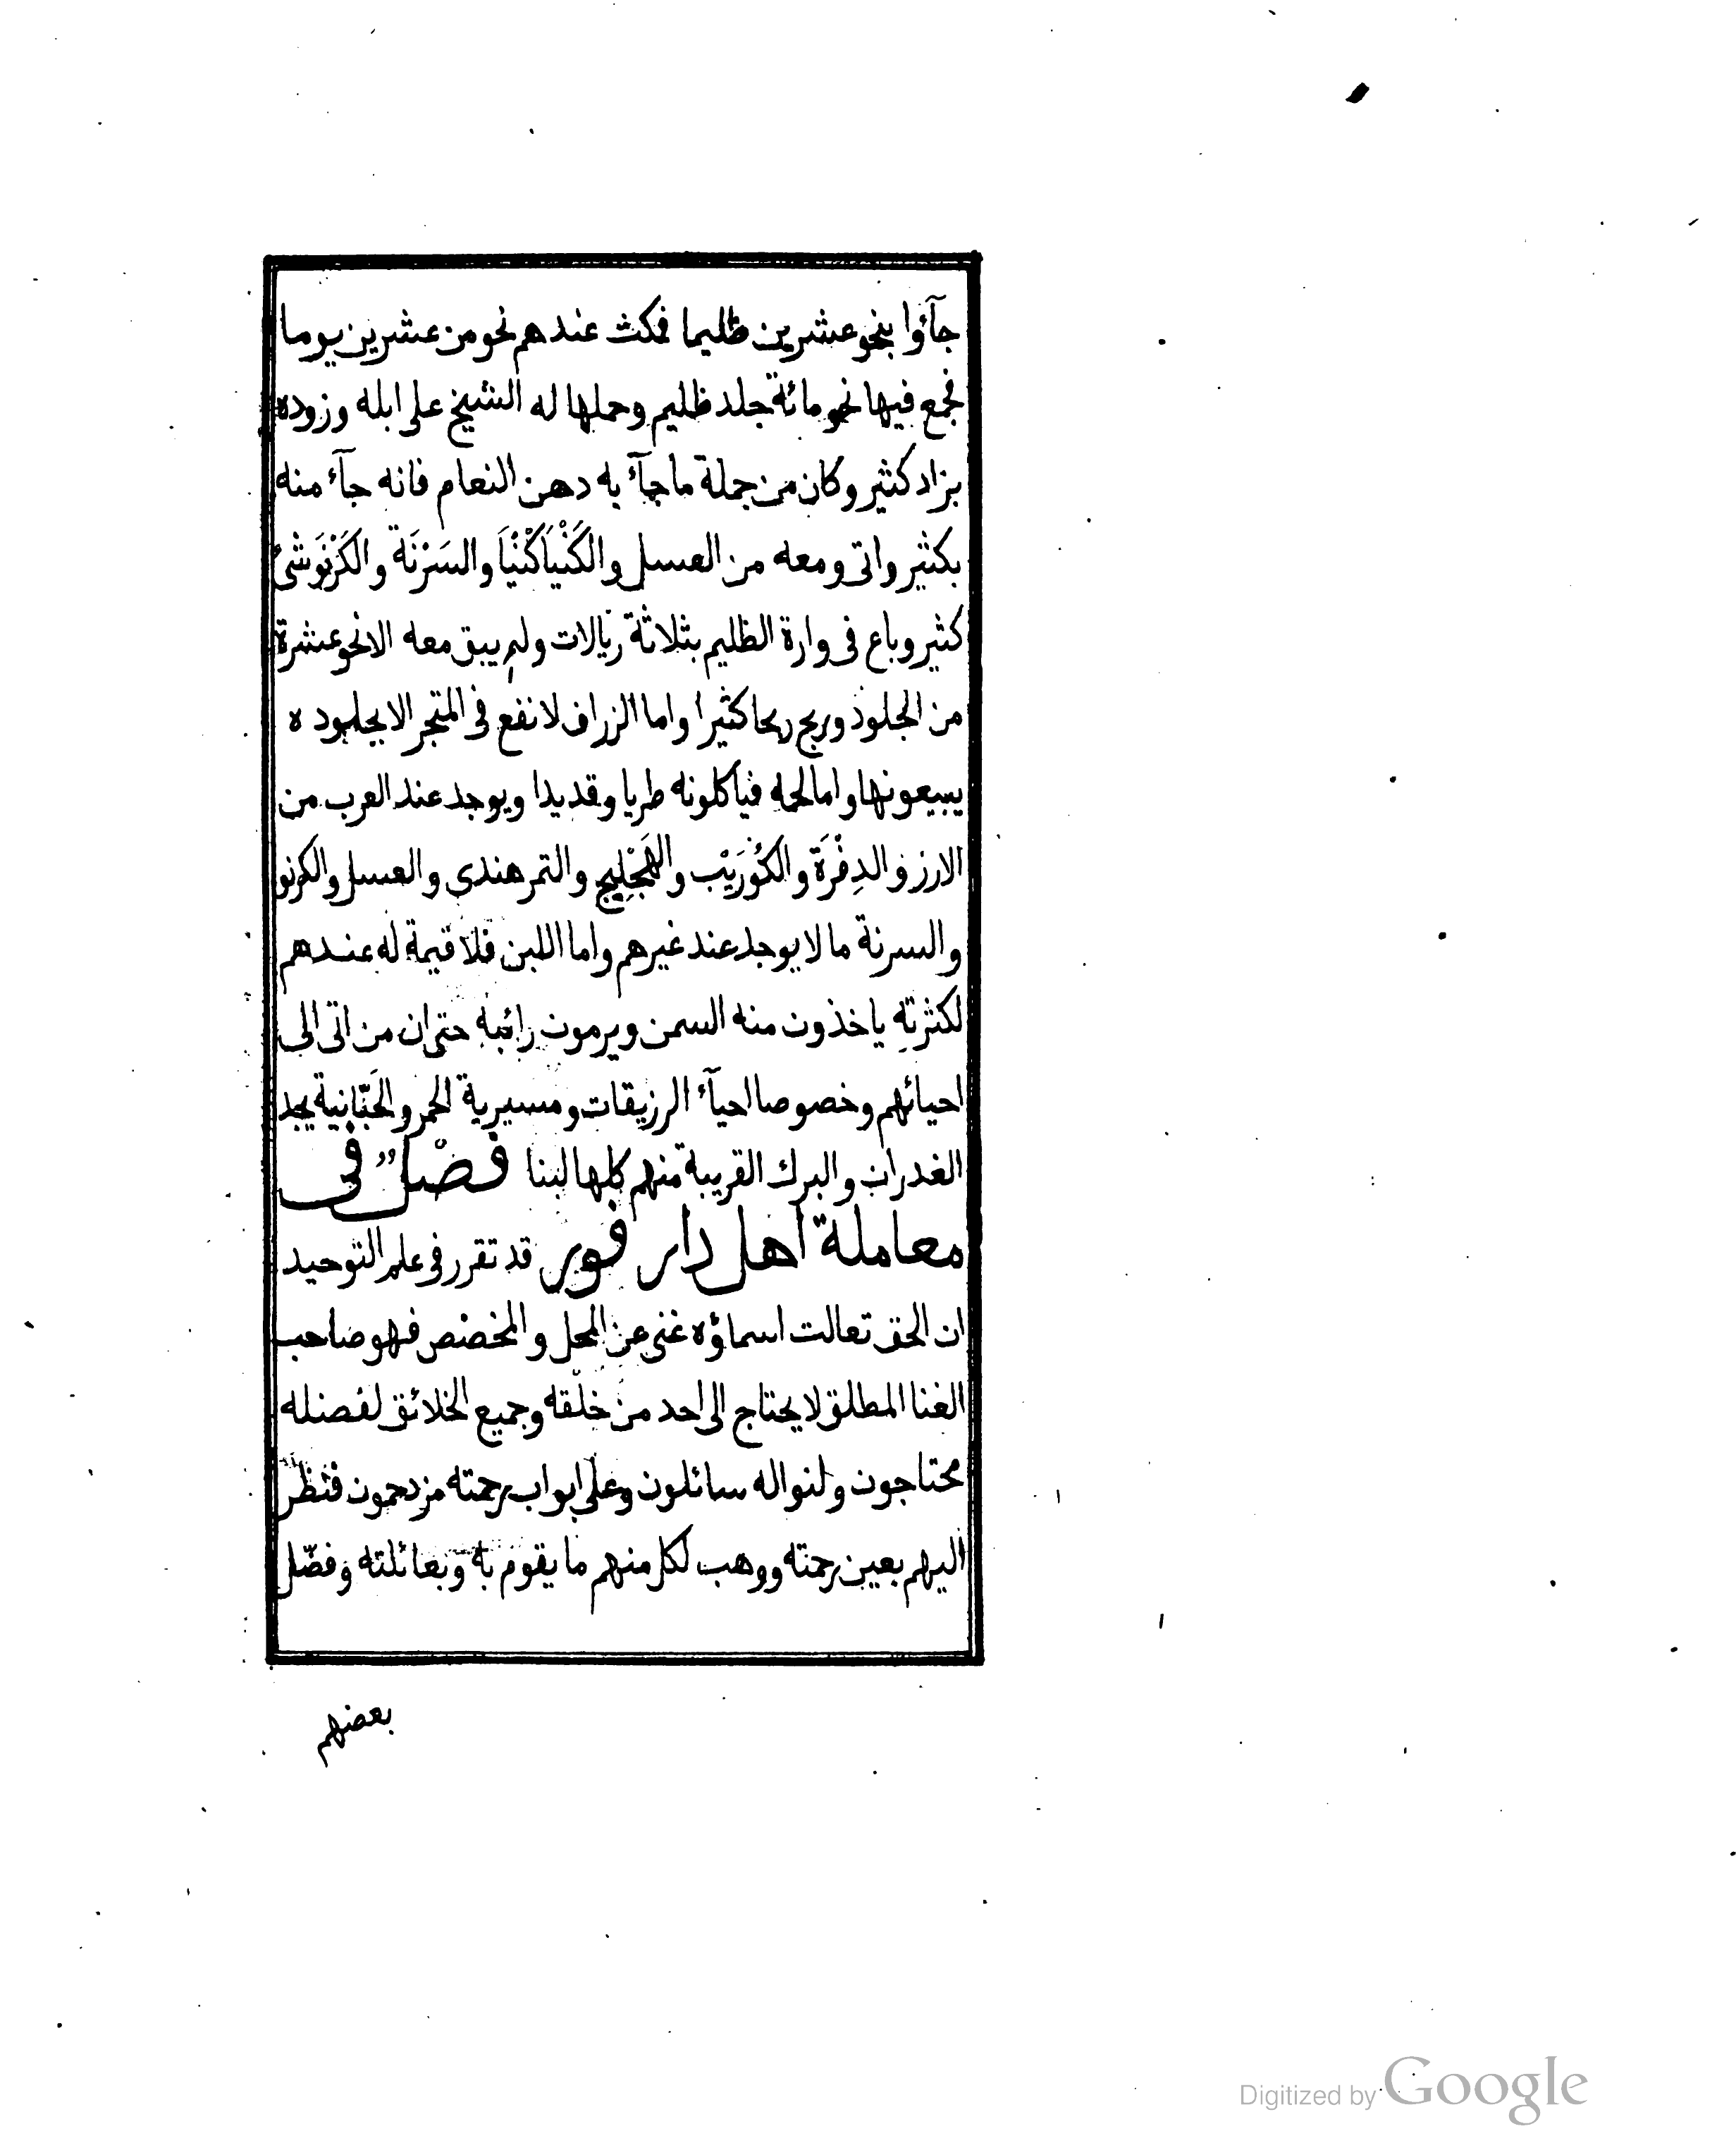 جآؤا بنحو عشرين ظليما فمكث عندهم نحو من عشرين يوما
فجمع فيها نحو مائة جلد ظليم وحملها له الشيخ على ابله وزوده
بزاد كثير وكان من جملة ما جآء به دهن النعام فانه جآء منه
بكثير واتى ومعه من العسل والكَنْيَاكْنْيَا والسَرْنَة والكَرْنَو شئ
كثير وباع فى وارة الظليم بثلاثة ريالات ولم يبق معه الا نحو عشرة
من الجلود وربح ربحا كثيرا واما الزراف لا نفع فى المتجر الا بجلوده
يبيعونها واما لحمه فيأكلونه طريا وقديدا ويوجد عند العرب من
الارز والدِفْرَة والكُوْرَيْب والهَجْلِيج والتمرهندى والعسل والكرنو
والسرنة ما لا يوجد عند غيرهم واما اللبن فلا قيمة له عندهم
لكثرتهِ ياخذون منه السمن ويرمون رائبه حتى ان من اتى الى
احيائهم وخصوصا احيآء الرزيقات ومسيرية الحمر والحَبّانية يجد
الغدران والبرك القريبة منهم كلها لبنا فصْل فى
معاملة اهل دار فور قد تقرر فى علم التوحيد
ان الحق تعالت اسماؤه غنى عن المحل والمخصص فهو صاحب
الغنا المطلق لا يحتاج الى احد من خلقه وجميع الخلائق لفضله
محتاجون ولنواله سائلون وعلى ابواب رحمته مزدحمون فنظر
اليهم بعين رحمته ووهب لكل منهم ما يقوم به وبعائلته وفضّل
بعضهم
Digitized by Google